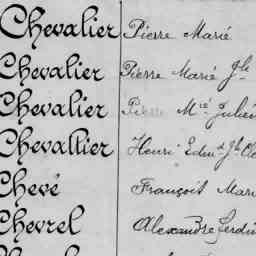 Chevalier Pierre Marie
Chevalier Pierre Marie Jh
Chevalier Pierre Mie Julien
Chevallier Henri Edmd Jh
Chevé François Mari
Chevrel Alexandre Ferdin